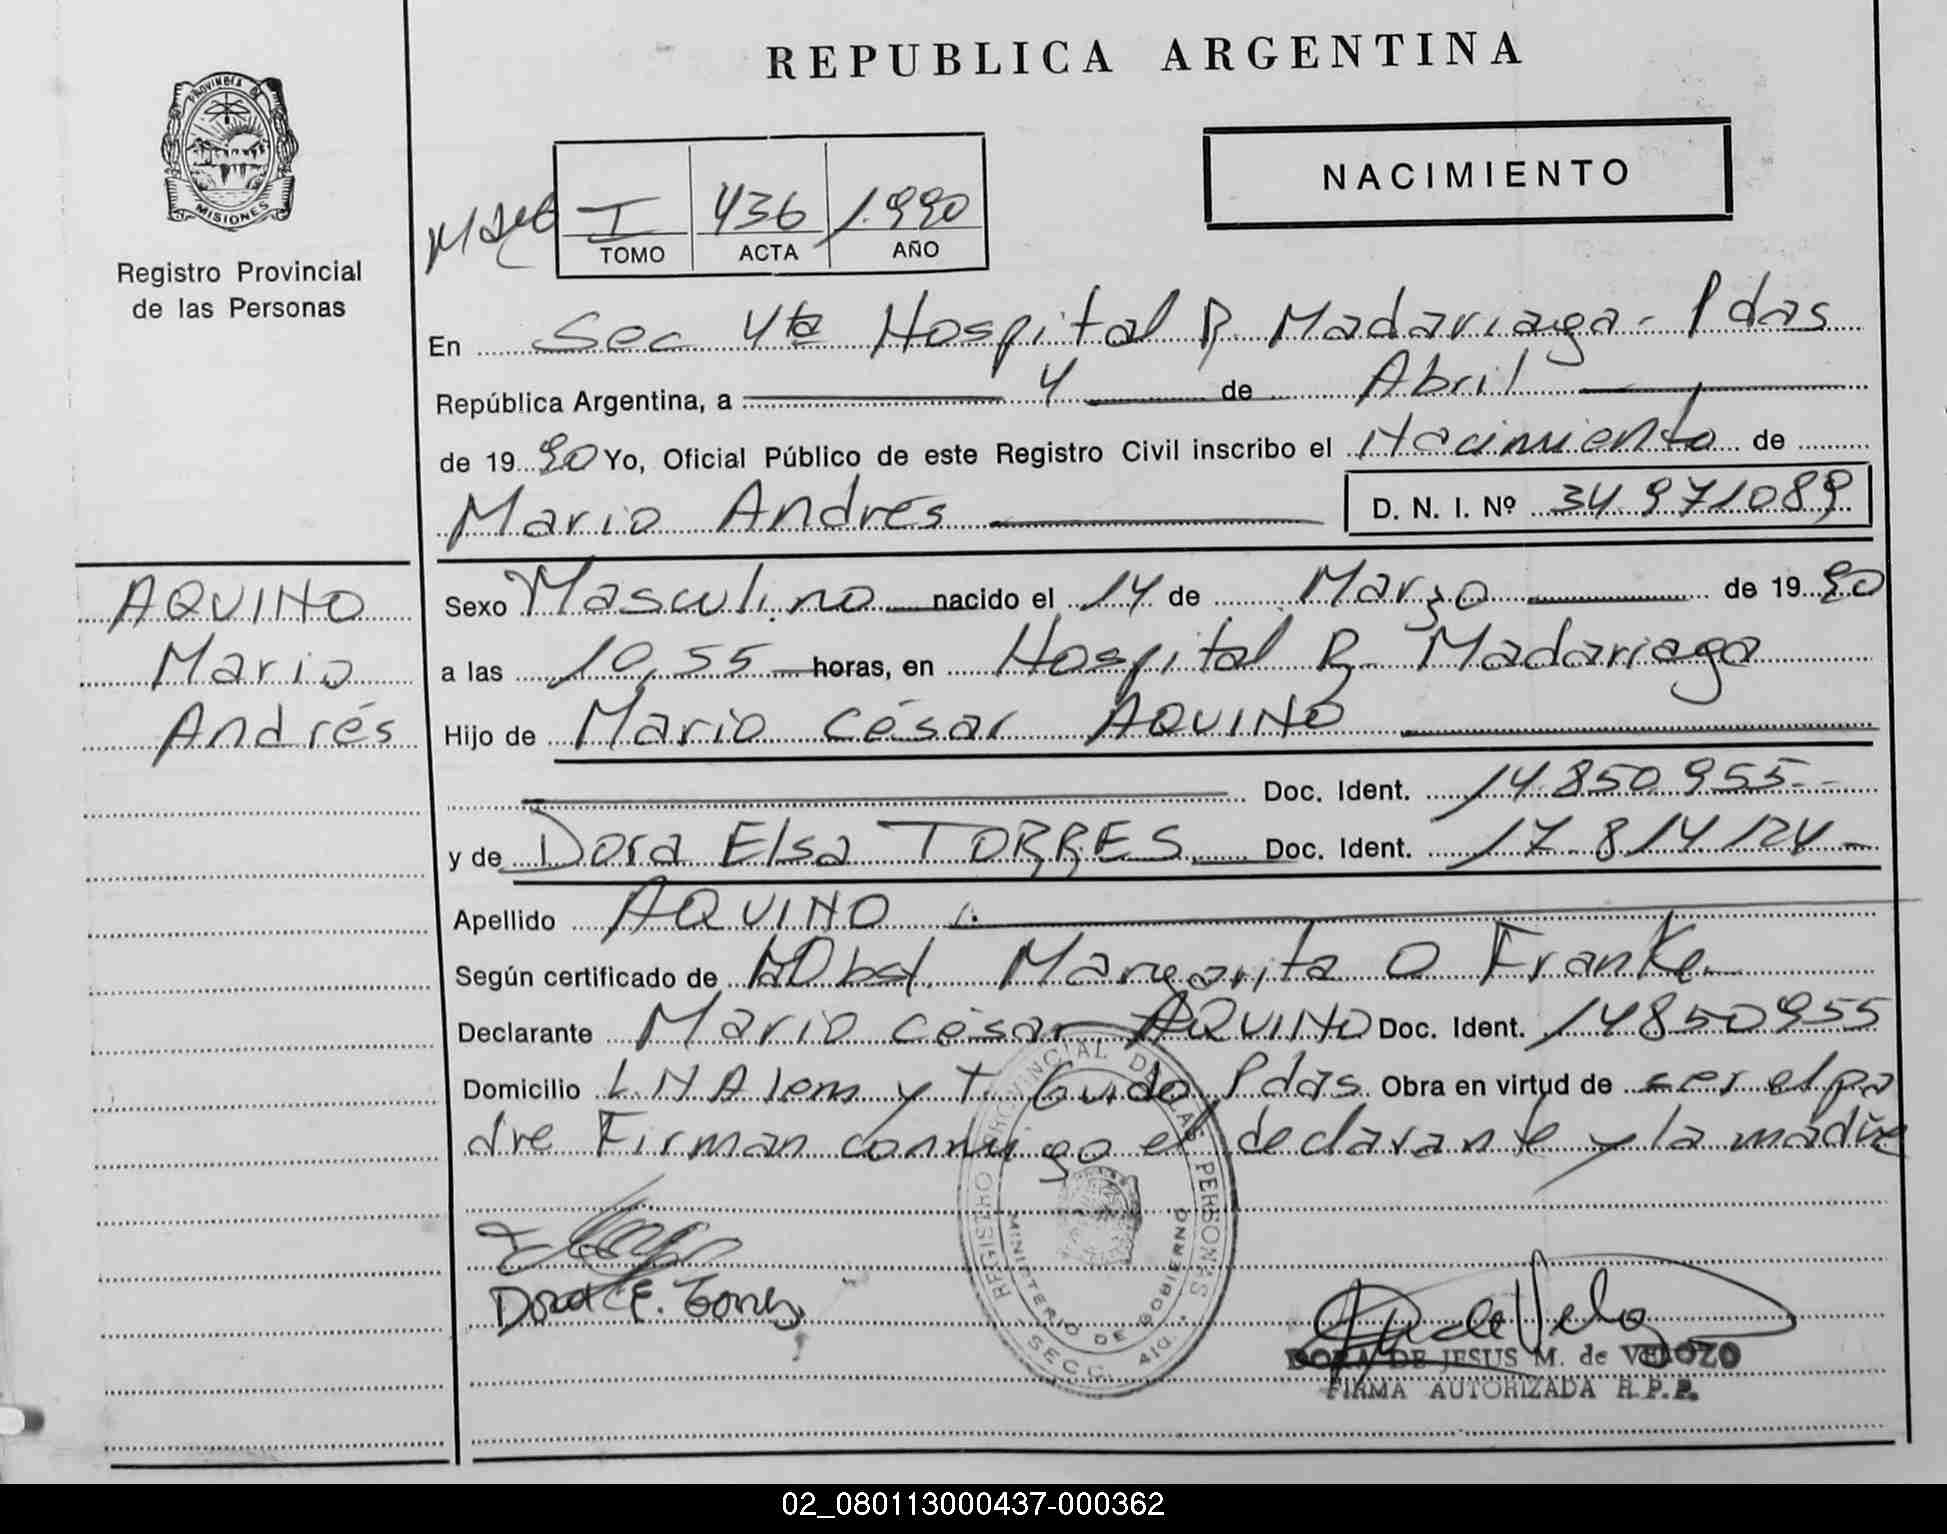 REPUBLICA ARGENTINA
PROVINCIA DE MISIONES
Registro Provincial
de las Personas
NACIMIENTO
I 436 1.990
TOMO ACTA AÑO
En Sec 4ta Hospital R. Madariaga - Pdas
República Argentina, a 4 de Abril
de 1990 Yo, Oficial Público de este Registro Civil inscribo el Nacimiento de
Mario Andrés D. N. I. Nº 34.971089
AQUINO
Mario
Andrés
Sexo Masculino nacido el 14 de Marzo de 1990
a las 10,55 horas, en Hospital R Madariaga
Hijo de Mario César AQUINO
Doc. Ident. 14.850.955-
y de Dora Elsa TORRES Doc. Ident. 17.814124-
Apellido AQUINO
Según certificado de Obst. Margarita O Franke
Declarante Mario César AQUINO Doc. Ident. 14850955
Domicilio L.N Alem y T. Guido Pdas. Obra en virtud de ser el pa
dre Firman conmigo el declarante y la madre
REGISTRO PROVINCIAL DE LAS PERSONAS
MINISTERIO DE GOBIERNO
SECC. 4ta.
Dora E. Torres
DORA DE JESUS M. de VELOZO
FIRMA AUTORIZADA R.P.P.
02_080113000437-000362